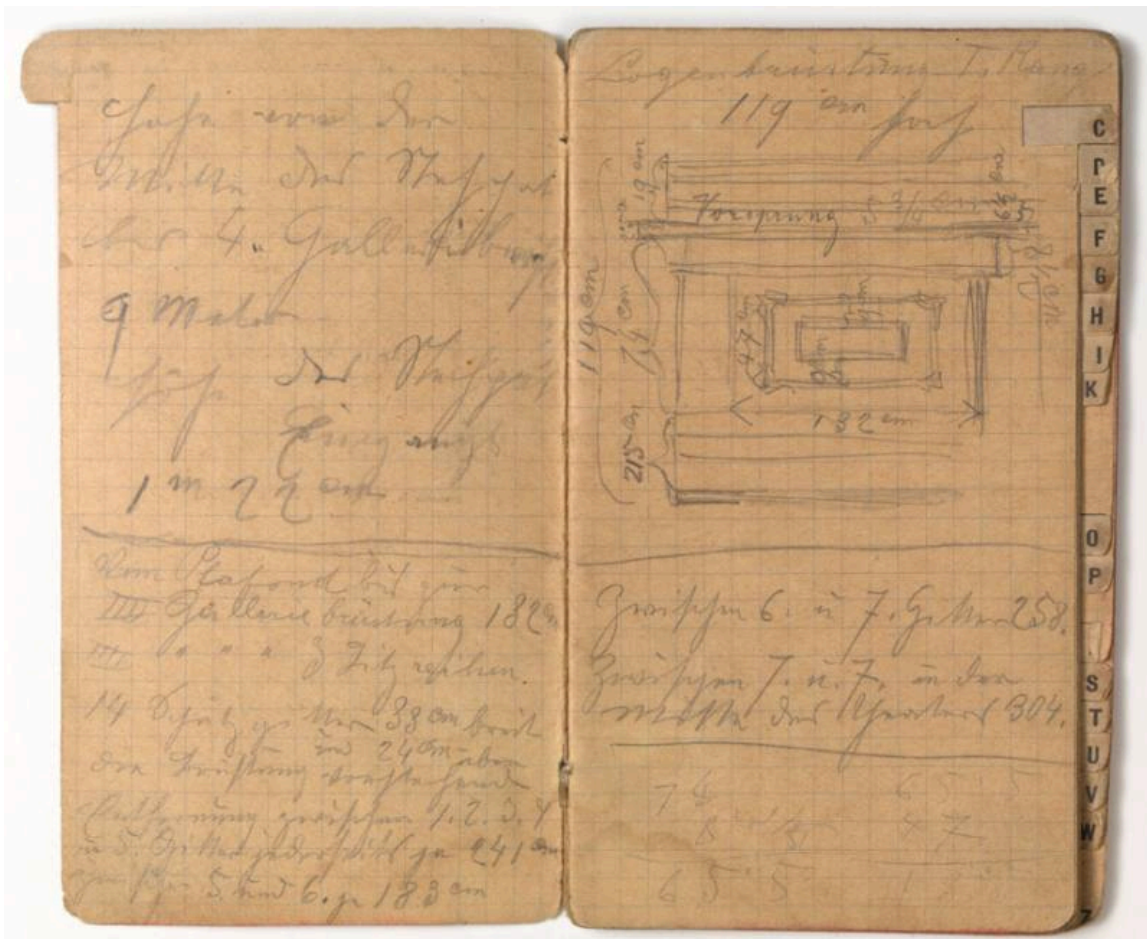 Höhe von der
Mitte des Stehpar
bis 4. Galleriebrüstg
9 Meter
Höhe des Stehpar
Eingangs
1 m 22 cm
Vom Plafond bis zur
III Galleriebrüstung 182 cm
III " " " 3 Sitzreihen.
14 Schutzgitter 38 cm breit
und 24 cm über
die Brüstung vorstehend
Entfernung zwischen 1. 2. 3. 4
u 5. Gitter jederseits je 241 cm
5 und 6. je 183 cm
Logenbrüstung I. Rang
119 cm hoch
19 cm
Vorsprung 5 3/4 cm
6 1/2 cm
8 1/2 cm
119 cm
74 cm
47 cm
132 cm
215 cm
Zwischen 6. u 7. Gitter 258.
Zwischen 7. u. 7. in der
Mitte des Theaters 304.
C
E
F
G
H
I
K
O
P
S
T
U
V
W
Z